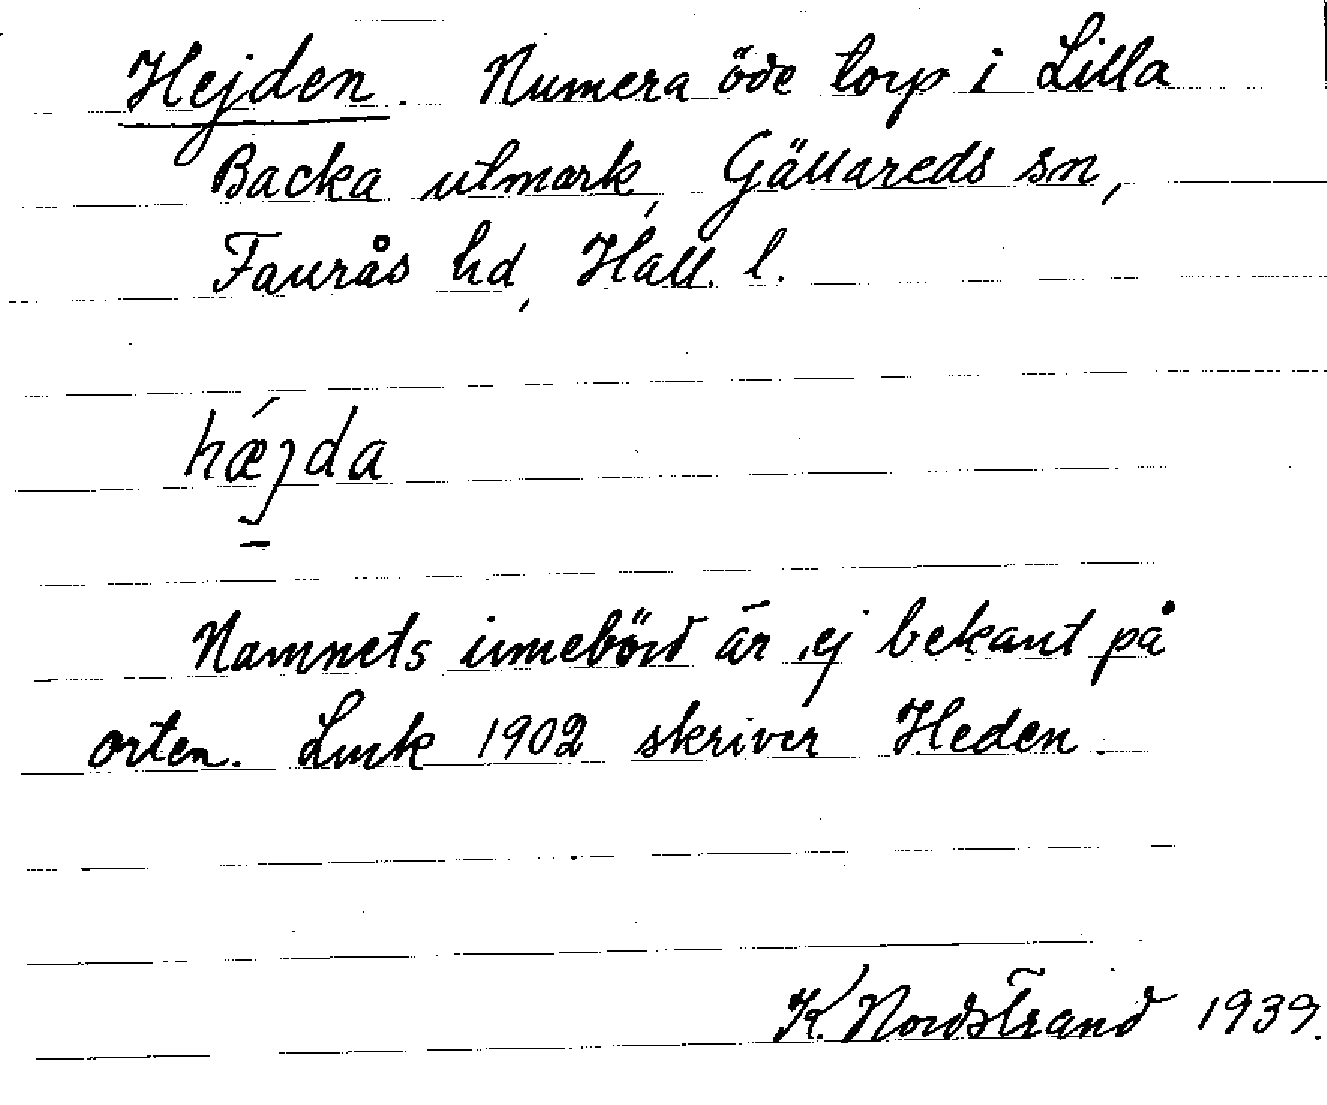 Hejden. Numera öde torp i Lilla
Backa utmark, Gällareds sn,
Faurås hd, Hall. l.
hǽjda
Namnets innebörd är ej bekant på
orten. Lmk 1902 skriver Heden.
K. Nordstrand 1939.